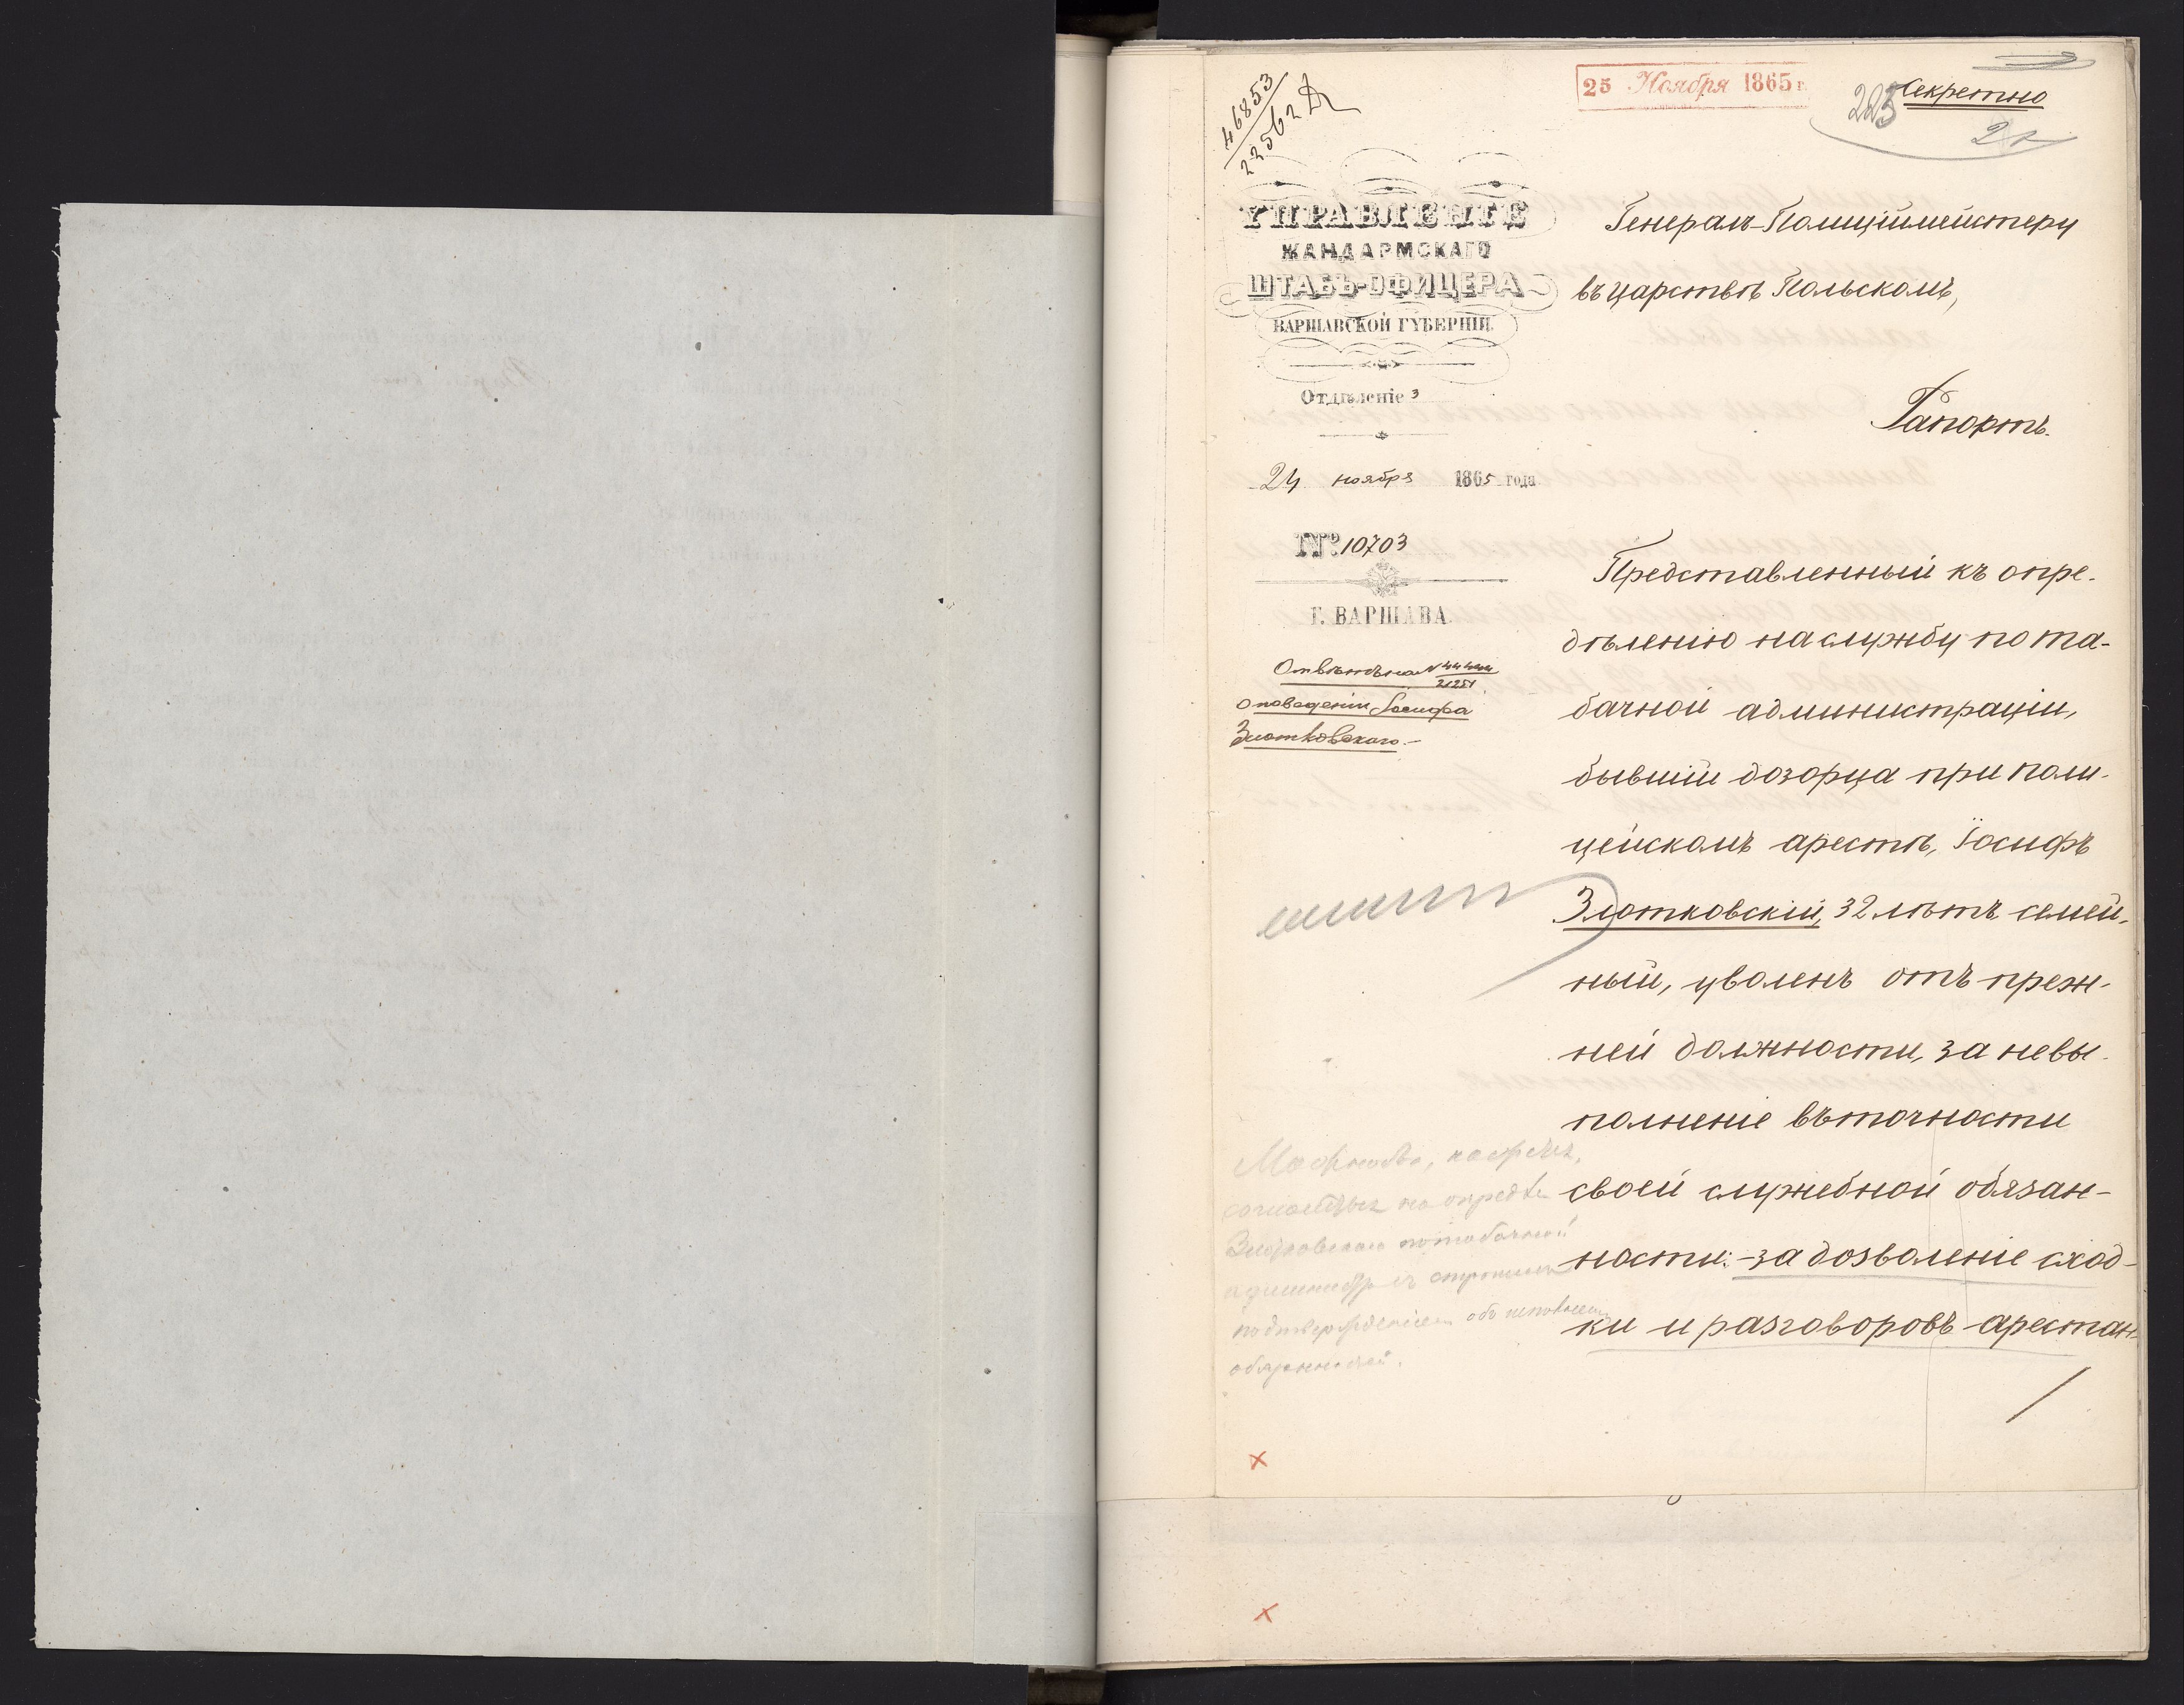 46853
22562
25 Ноября 1865 г.
Секретно
223
УПРАВЛЕНІЕ
ЖАНДАРМСКАГО
ШТАБЪ-ОФИЦЕРА
ВАРШАВСКОЙ ГУБЕРНІИ.
Отдѣленіе 3
24 ноября 1865 года
№ 10703
Г. ВАРШАВА.
о поведеніи Іосифа
Злотковскаго.-
Генералъ-Полиціймейстеру
въ царствѣ Польскомъ,
Рапортъ.
Представленный къ опре-
дѣленію на службу по та-
бачной администраціи,
бывшій дозорца при поли-
цейскомъ арестѣ, Іосифъ
Злотковскій, 32 лѣтъ семей-
ный, уволенъ отъ преж-
ней должности, за невы-
полненіе въ точности
своей служебной обязан-
ности: - за дозволеніе сход-
ки и разговоровъ арестан-
Можно бы,
на опредѣл
по табачной
подтвержденіем объ исполнен
обязанностей.